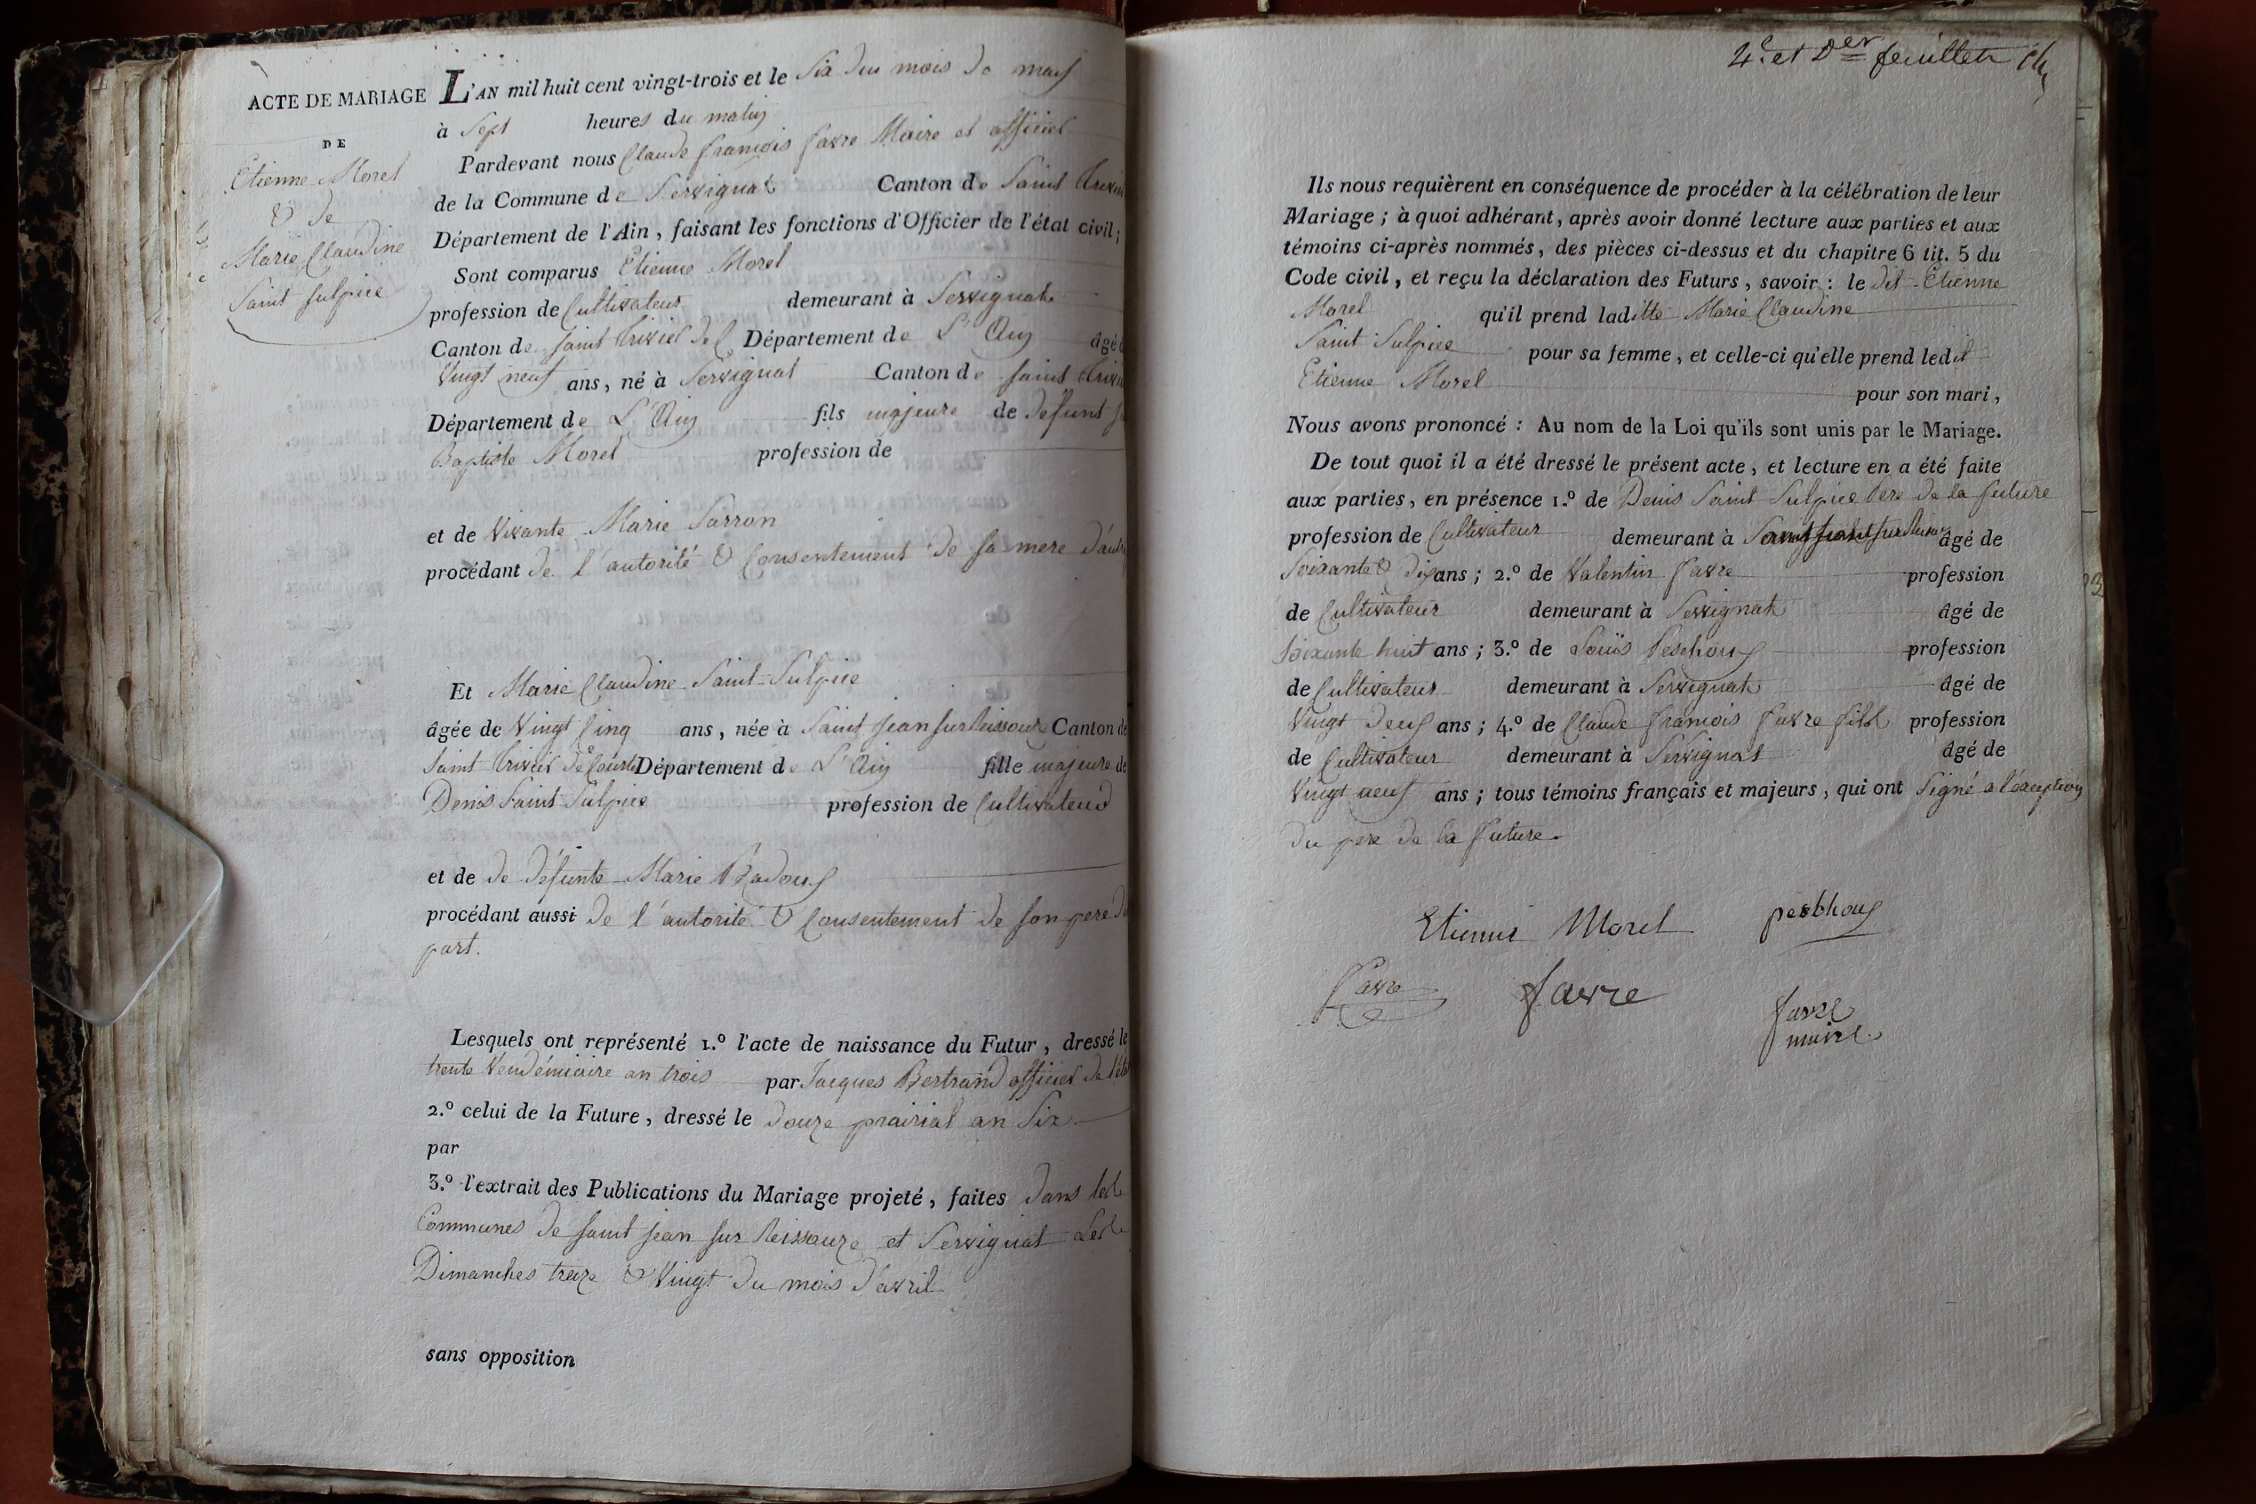 ACTE DE MARIAGE
DE
Etienne Morel
& de
Marie Claudine
Saint Sulpice
L'AN mil huit cent vingt-trois et le Six du mois de
à Sept heures du matin
Pardevant nous Claude François Favre Maire et officier
de la Commune de Servignat Canton de Saint Trivier
Département de l'Ain, faisant les fonctions d'Officier de l'état civil;
Sont comparus Etienne Morel
profession de Cultivateur demeurant à Servignat
Canton de Saint Trivier de C Département de L'Ain âgé
Vingt neuf ans, né à Servignat Canton de Saint Trivier
Département de L'Ain fils majeure de defunt
Baptiste Morel profession de
et de Vivante Marie Sarron
procédant de l'autorité & Consentement de sa mere
Et Marie Claudine Saint Sulpice
âgée de Vingt Cinq ans, née à Saint Jean sur Reissouze Canton de
Saint Trivier de Courtes Département de L'Ain fille majeure de
Denis Saint Sulpice profession de Cultivateur
et de de défunte Marie
procédant aussi de l'autorité & Consentement de son pere
part.
Lesquels ont représenté 1.º l'acte de naissance du Futur, dressé le
trente Vendémiaire an trois par Jacques Bertrand officier de
2.º celui de la Future, dressé le douze prairial an Six
par
3.º l'extrait des Publications du Mariage projeté, faites dans les
Communes de Saint Jean sur Reissouze et Servignat Les
Dimanches treize & Vingt du mois d'avril
sans opposition
4.e et Der feuillet
Ils nous requièrent en conséquence de procéder à la célébration de leur
Mariage; à quoi adhérant, après avoir donné lecture aux parties et aux
témoins ci-après nommés, des pièces ci-dessus et du chapitre 6 tit. 5 du
Code civil, et reçu la déclaration des Futurs, savoir: le dit Etienne
Morel qu'il prend laditte Marie Claudine
Saint Sulpice pour sa femme, et celle-ci qu'elle prend ledit
Etienne Morel
pour son mari,
Nous avons prononcé: Au nom de la Loi qu'ils sont unis par le Mariage.
De tout quoi il a été dressé le présent acte, et lecture en a été faite
aux parties, en présence 1.º de Denis Saint Sulpice Pere de la future
profession de Cultivateur demeurant à Saint Jean sur Reissouze âgé de
Soixante & dix ans; 2.º de Valentin Favre profession
de Cultivateur demeurant à Servignat âgé de
Soixante huit ans; 3.º de Louis Peschoux profession
de Cultivateur demeurant à Servignat âgé de
Vingt neuf ans; 4.º de Claude François Favre fils profession
de Cultivateur demeurant à Servignat âgé de
Vingt neuf ans; tous témoins français et majeurs, qui ont Signé a l'exception
du pere de la Future.
Etienne Morel peschoux
Favre favre favre
maire